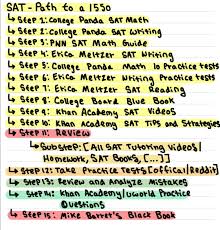 SAT - Path to a 1550
Step 1: College Panda SAT Math
Step 2: College Panda SAT Writing
Step 3: PWN SAT Math Guide
Step 4: Erica Meltzer SAT Writing
Step 5: College Panda Math 10 Practice tests
Step 6: Erica Meltzer Writing Practice tests
Step 7: Erica Meltzer SAT Reading
Step 8: College Board Blue Book
Step 9: Khan Academy SAT Videos
Step 10: Khan Academy SAT Tips and Strategies
Step 11: Review
Substep: [All SAT Tutoring Videos/
Homework, SAT Books, [...]]
Step 12: Take Practice Tests [Offical/Reddit]
Step 13: Review and Analyze Mistakes
Step 14: Khan Academy/uWorld Practice
Questions
Step 15: Mike Barret's Black Book